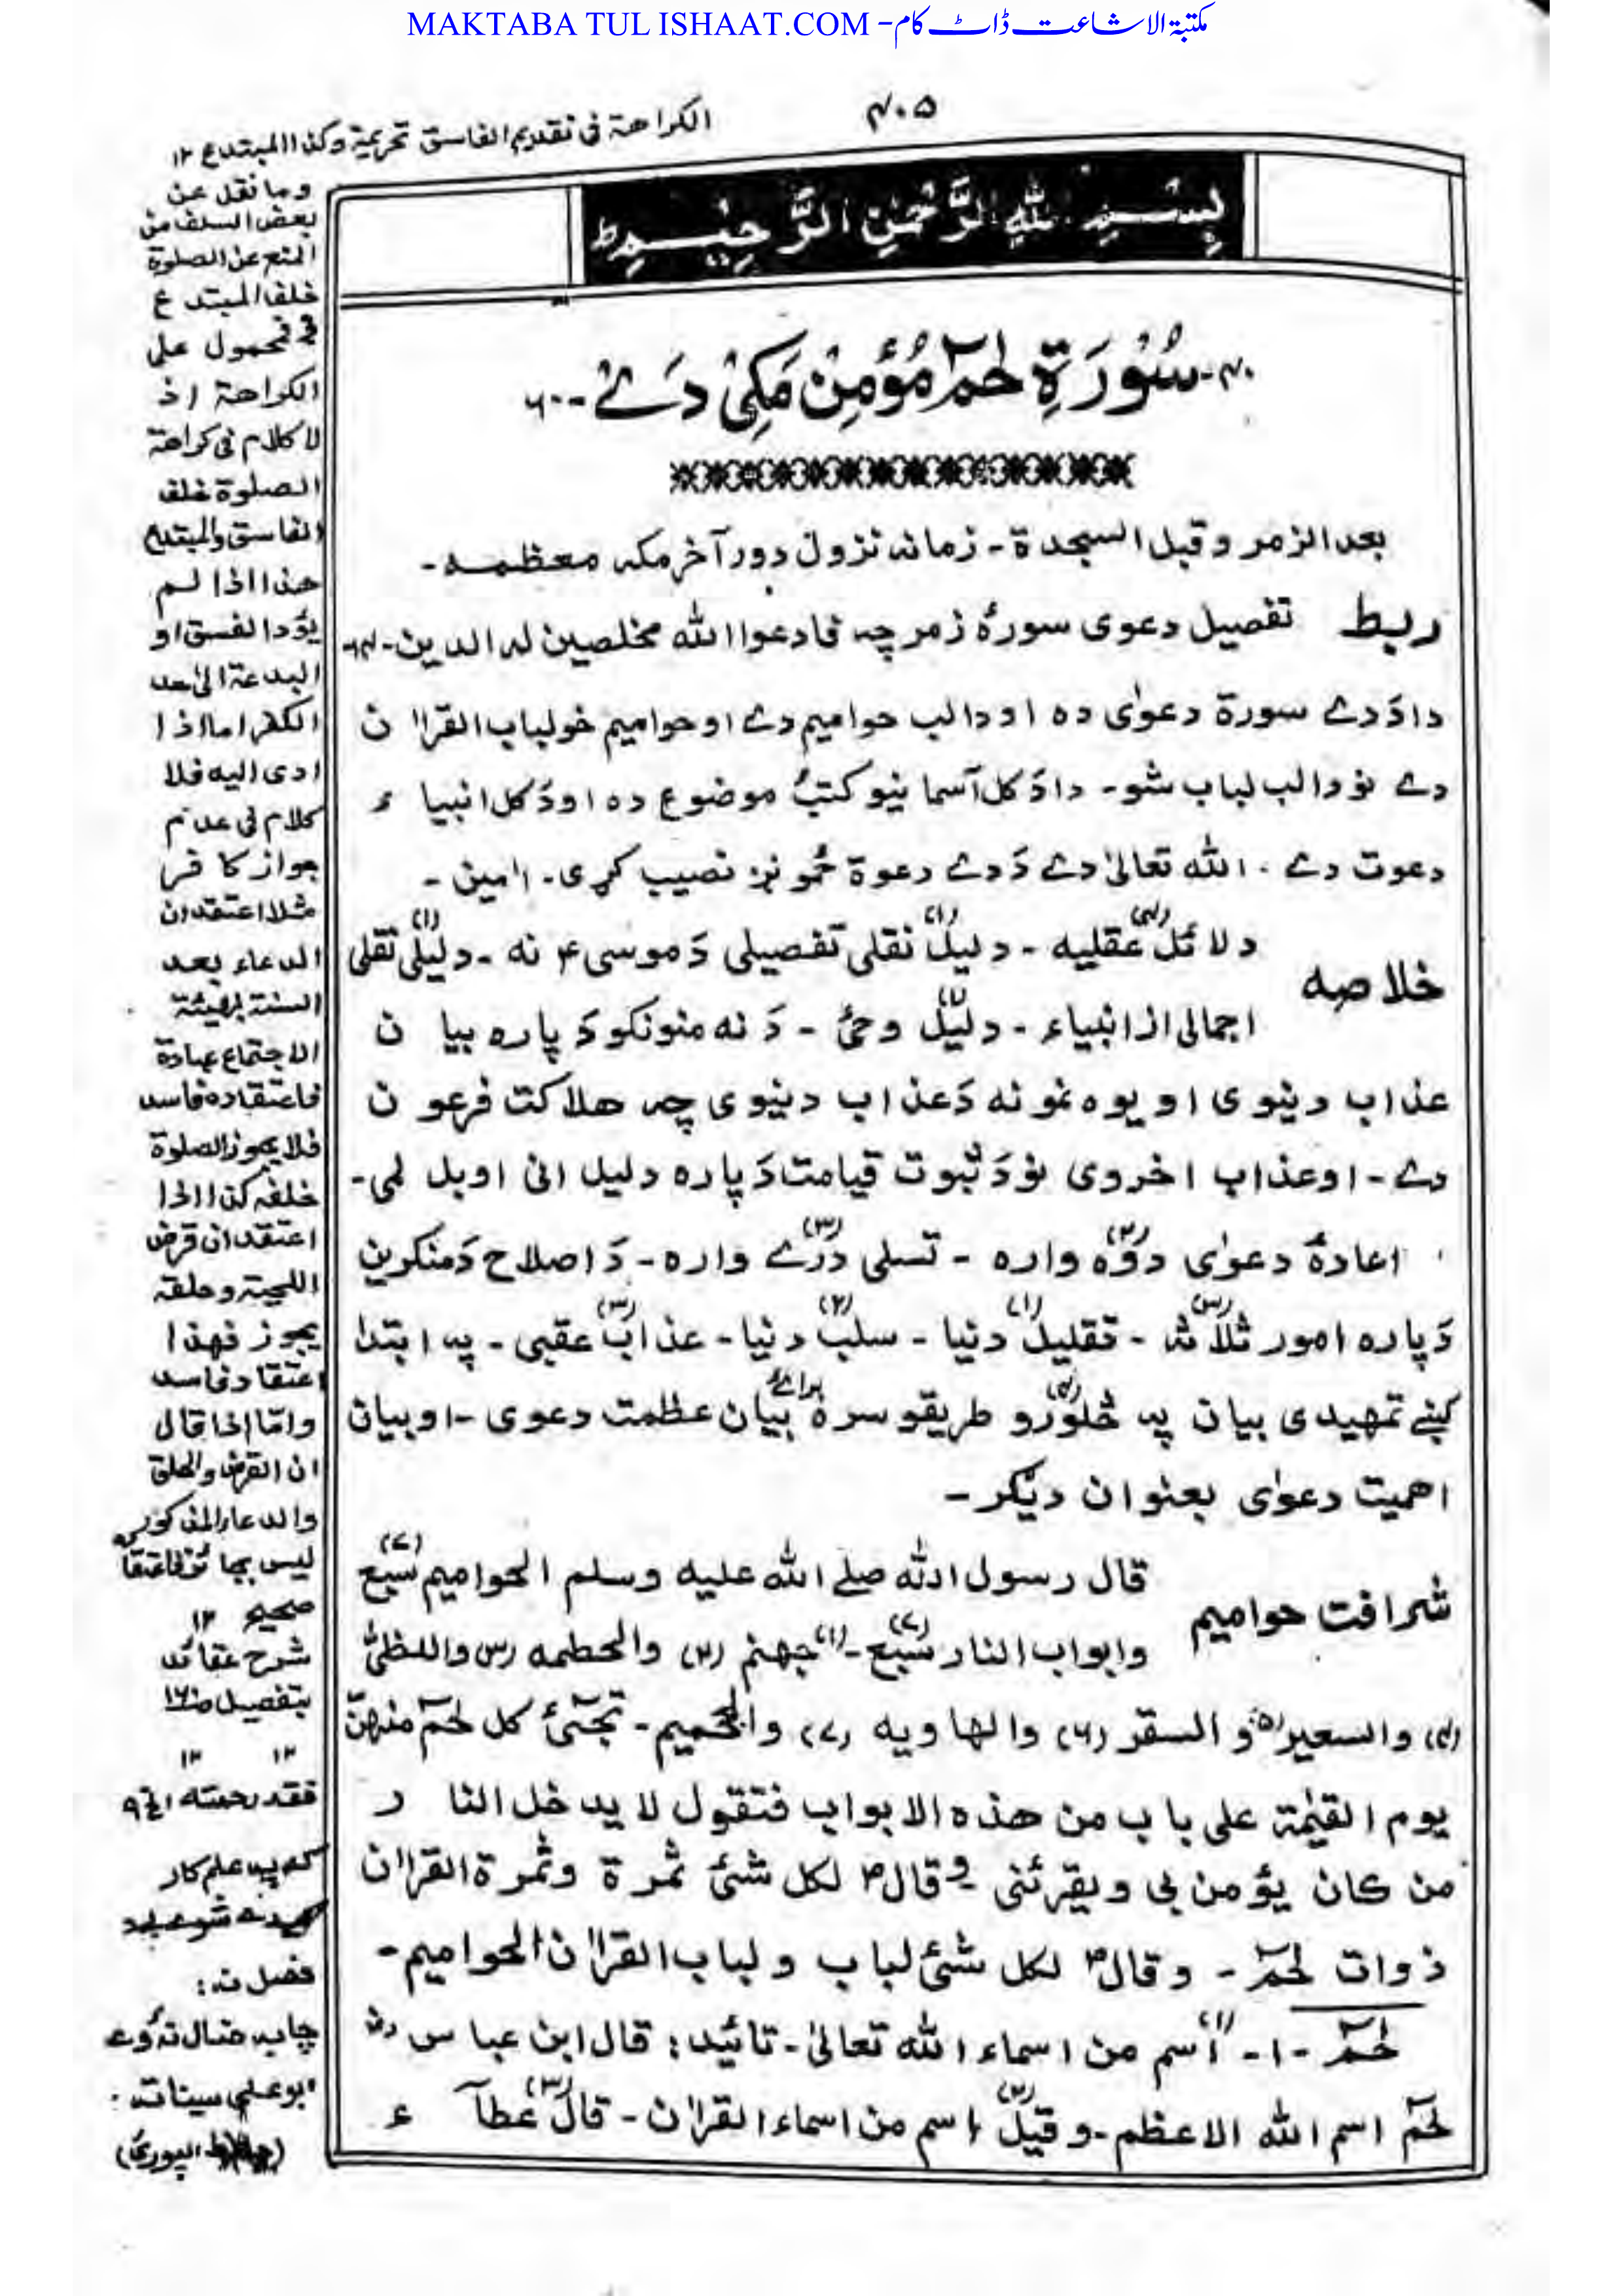 MAKTABA TUL ISHAAT.COM - مکتبۃ الاشاعت ڈاٹ کام
۴۰۵
الکراهة فی تقدیم الفاسق تحریمیة وکذا المبتدع ۱۲
بِسْمِ اللّٰهِ الرَّحْمٰنِ الرَّحِیْمِ ط
۴۰- سُوْرَةِ حٰمٓ مُؤْمِنْ مَکِیْ دَے -۶۰
بعد الزمر و قبل السجدة - زمانہ نزول دور آخر مکہ معظمہ -
ربط تفصیل دعوی سورۂ زمر چہ فادعوا اللہ مخلصین لہ الدین -
دا دَ دے سورة دعوٰی دہ او دا لب حوامیم دے او حوامیم خو لباب القراٰن
دے نو دا لب لباب شو - دا دَ کل آسمانیو کتبُ موضوع دہ او دَ کل انبیاء
دعوت دے . اللہ تعالیٰ دے دَ دے دعوة خُمونږ نصیب کړی . اٰمین -
خلاصہ
دلائل (۴) عقلیہ - دلیل (۱) نقلی تفصیلی دَ موسی ع نہ - دلیل (۱) نقلی
اجمالی از انبیاء - دلیل (۱) وحی - دَ نہ منونکو دَ پارہ بیان
عذاب دنیوی او یوہ نمونہ دَ عذاب دنیوی چہ هلاکت فرعون
دے - او عذاب اخروی نو دَ ثبوت قیامت دَ پارہ دلیل انی او بل لمی -
اعادۂ دعوٰی دوہ (۲) وارہ - تسلی درے (۳) وارہ - دَ اصلاح دَ منکرین
دَ پارہ امور ثلاثہ (۳) - تقلیل (۱) دنیا - سلب (۲) دنیا - عذاب (۳) عقبی - پہ ابتدا
کښے تمهیدی بیان پہ څلورو (۴) طریقو سرہ برائے بیان عظمت دعوی - او بیان
اهمیت دعوٰی بعنوان دیگر -
شرافت حوامیم
قال رسول اللہ صلے اللہ علیہ وسلم الحوامیم سبع (۷)
وابواب النار سبع (۷) - (۱) جهنم (۲) والحطمہ (۳) واللظیٰ
(۴) والسعیر (۵) و السقر (۶) والهاویہ (۷) والجحیم - تجئ کل حٰمٓ منهنّ
یوم القیٰمة علی باب من هذہ الابواب فتقول لا یدخل النار
من کان یؤمن بی ویقرئنی - و قال ؐ لکل شئ ثمرة وثمرة القراٰن
ذوات حٰمٓ - وقال ؐ لکل شئ لباب و لباب القراٰن الحوامیم -
حٰمٓ - ۱ - (۱) اسم من اسماء اللہ تعالیٰ - تائید : قال ابن عباس رض
حٰمٓ اسم اللہ الاعظم - و قیل (۲) اسم من اسماء القراٰن - قال (۳) عطآء
وما نقل عن
بعض السلف من
المنع عن الصلوة
خلف المبتدع
فمحمول علی
الکراهة اذ
لا کلام فی کراهة
الصلوة خلف
الفاسق والمبتدع
هذا اذا لم
یؤد الفسق او
البدعة الیٰ حد
الکفر اما اذا
ادی الیه فلا
کلام فی عدم
جواز کافر
مثلا اعتقد ان
الدعاء بعد
السنة بهیئة
الاجتماع عبادة
فاعتقاده فاسد
فلا یجوز الصلوة
خلفہ کذا اذا
اعتقد ان قرض
اللحیة وحلقہ
یجوز فهذا
اعتقاد فاسد
وامّا اذا قال
ان القرض والحلق
والدعاء المذکور
لیس بها
صحیح ۱۲
شرح عقائد
بتفصیل
۱۲ ۱۲
فقد رحمته
کہ پہ علم کار
فضل نہ :
چابہ
بوعلی سینا تہ .